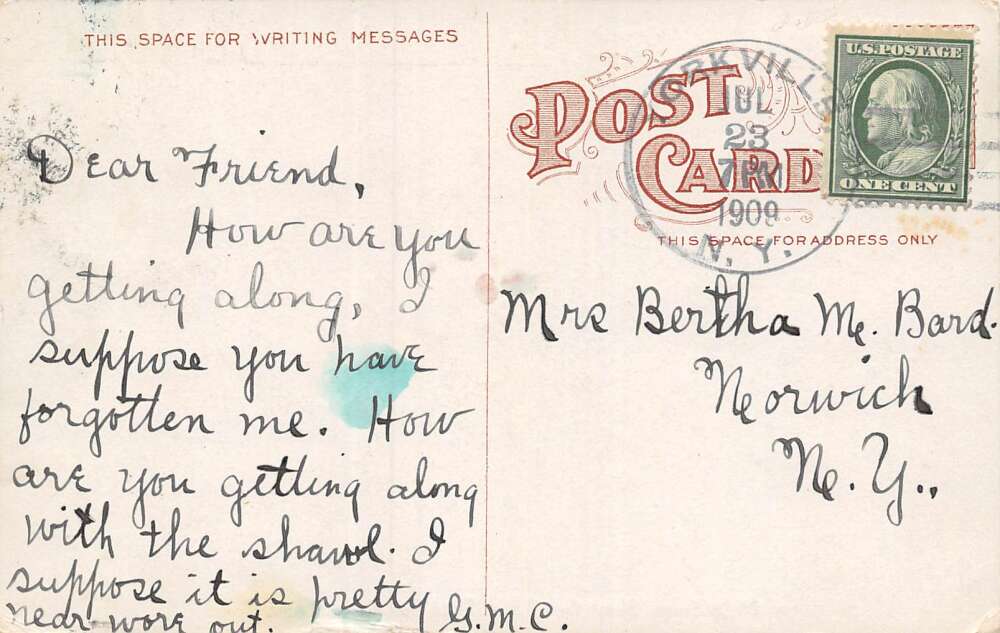 THIS SPACE FOR WRITING MESSAGES
Dear Friend,
How are you
getting along, I
suppose you have
forgotten me. How
are you getting along
with the shawl. I
suppose it is pretty
near wore out. G.M.C.
POST
CARD
THIS SPACE FOR ADDRESS ONLY
YORKVILLE
JUL
23
7 PM
1909
N.Y.
U.S. POSTAGE
ONE CENT
Mrs Bertha M. Bard.
Norwich
N.Y.,